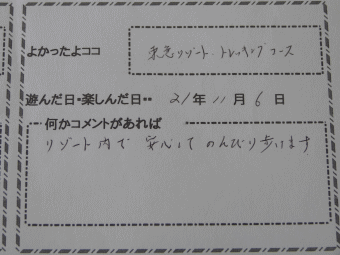 よかったよココ
東急リゾート・トレッキングコース
遊んだ日・楽しんだ日・・ 21年11月6日
何かコメントがあれば
リゾート内で安心してのんびり歩けます